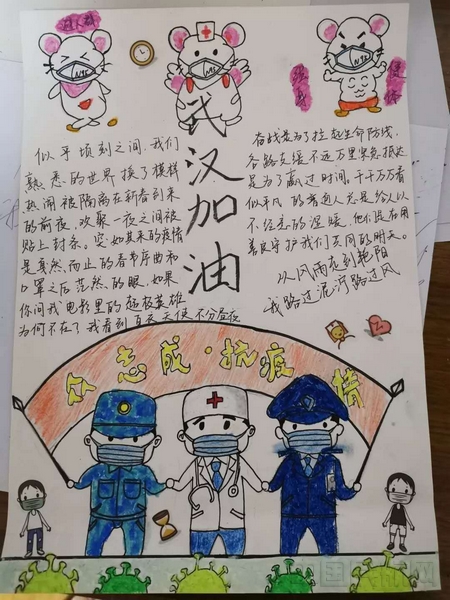 N95
N95
N95
强身
健体
武汉加油
似乎顷刻之间,我们
熟悉的世界换了模样
热闹被隔离在新春到来
的前夜,欢聚一夜之间被
贴上封条。突如其来的疫情
是戛然而止的春节序曲和
口罩之后茫然的眼,如果
你问我电影里的超级英雄
为何不在了我看到白衣天使不分昼夜
奋战是为了拉起生命防线,
各路支援不远万里
是为了赢过时间。千千万万看
似平凡的普通人总是给人以
不经意的温暖,他们是在用
善良守护我们共同的明天。
从风雨走到艳阳
我路过泥泞路过风
众志成·抗疫情